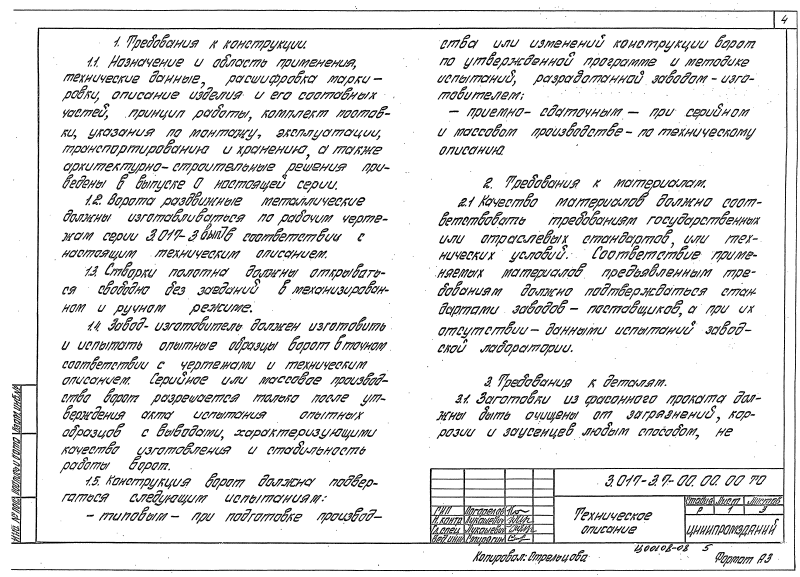 4
1. Требования к конструкции.
1.1. Назначение и область применения,
технические данные, расшифровка марки-
ровки, описание изделия и его составных
частей, принцип работы, комплект постав-
ки, указания по монтажу, эксплуатации,
транспортированию и хранению, а также
архитектурно-строительные решения при-
ведены в выпуске 0 настоящей серии.
1.2. Ворота раздвижные металлические
должны изготавливаться по рабочим черте-
жам серии 3.017-3 вып. в соответствии с
настоящим техническим описанием.
1.3. Створки полотна должны открывать-
ся свободно без заеданий в механизирован-
ном и ручном режиме.
1.4. Завод-изготовитель должен изготовить
и испытать опытные образцы ворот в точном
соответствии с чертежами и техническим
описанием. Серийное или массовое производ-
ство ворот разрешается только после ут-
верждения акта испытания опытных
образцов с выводами, характеризующими
качество изготовления и стабильность
работы ворот.
1.5. Конструкция ворот должна подвер-
гаться следующим испытаниям:
- типовым - при подготовке производ-
ства или изменений конструкции ворот
по утвержденной программе и методике
испытаний, разработанной заводом-изго-
товителем;
- приемно-сдаточным - при серийном
и массовом производстве - по техническому
описанию.
2. Требования к материалам.
2.1 Качество материалов должно соот-
ветствовать требованиям государственных
или отраслевых стандартов, или тех-
нических условий. Соответствие приме-
няемых материалов предъявленным тре-
бованиям должно подтверждаться стан-
дартами заводов-поставщиков, а при их
отсутствии - данными испытаний завод-
ской лаборатории.
3. Требования к деталям.
3.1. Заготовки из фасонного проката дол-
жны быть очищены от загрязнений, кор-
розии и заусенцев любым способом, не
3.017-3.7-00.00.00 ТО
ГИП
Н.контр. Лукашевич
Гл.спец. Лукашевич
Вед.инж.
Техническое
описание
Стадия Лист Листов
Р 1 3
ЦНИИПРОМЗДАНИЙ
Ц00108-08 5
Копировал: Стрельцова
Формат А3
Инв. № подл. Подпись и дата Взам.инв.№